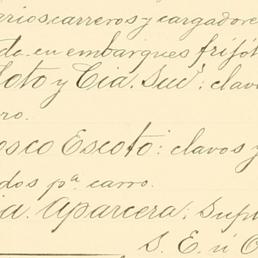 erios, carreros y cargadore
do en embarques frijó
Soto y Cia. Suc.: clavo
ro.
osco Escoto: clavos y
dos pª. carro.
ia. Aparcera: Supl
S. E. ú O